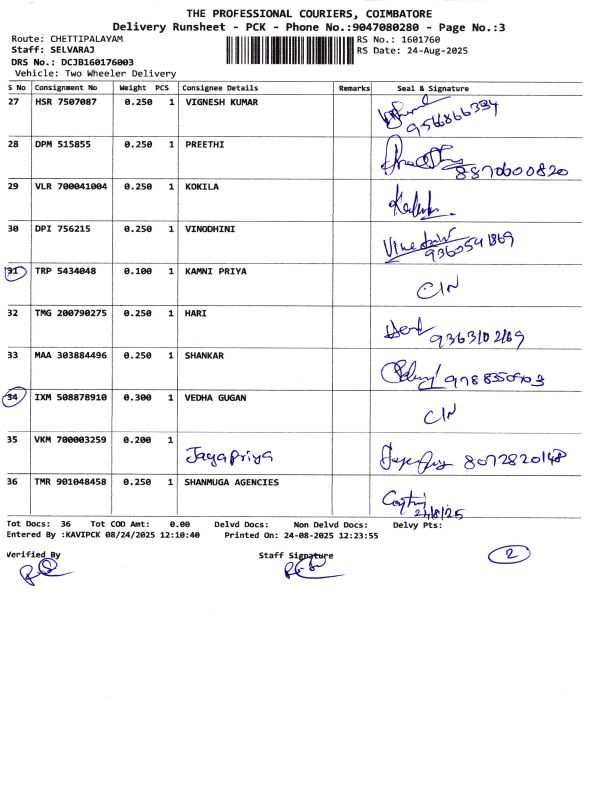 THE PROFESSIONAL COURIERS, COIMBATORE
Delivery Runsheet - PCK - Phone No.:9047080280 - Page No.:3
Route: CHETTIPALAYAM RS No.: 1601760
Staff: SELVARAJ RS Date: 24-Aug-2025
DRS No.: DCJB160176003
Vehicle: Two Wheeler Delivery
S No Consignment No Weight PCS Consignee Details Remarks Seal & Signature
27 HSR 7507087 0.250 1 VIGNESH KUMAR
28 DPM 515855 0.250 1 PREETHI
8870600820
29 VLR 700041004 0.250 1 KOKILA
30 DPI 756215 0.250 1 VINODHINI
9360541869
31 TRP 5434048 0.100 1 KAMNI PRIYA
32 TMG 200790275 0.250 1 HARI
9363102169
33 MAA 303884496 0.250 1 SHANKAR
9788350903
34 IXM 508878910 0.300 1 VEDHA GUGAN
35 VKM 700003259 0.200 1
Jayapriya 8072820148
36 TMR 901048458 0.250 1 SHANMUGA AGENCIES
24/8/25
Tot Docs: 36 Tot COD Amt: 0.00 Delvd Docs: Non Delvd Docs: Delvy Pts:
Entered By :KAVIPCK 08/24/2025 12:10:40 Printed On: 24-08-2025 12:23:55
Verified By Staff Signature 2